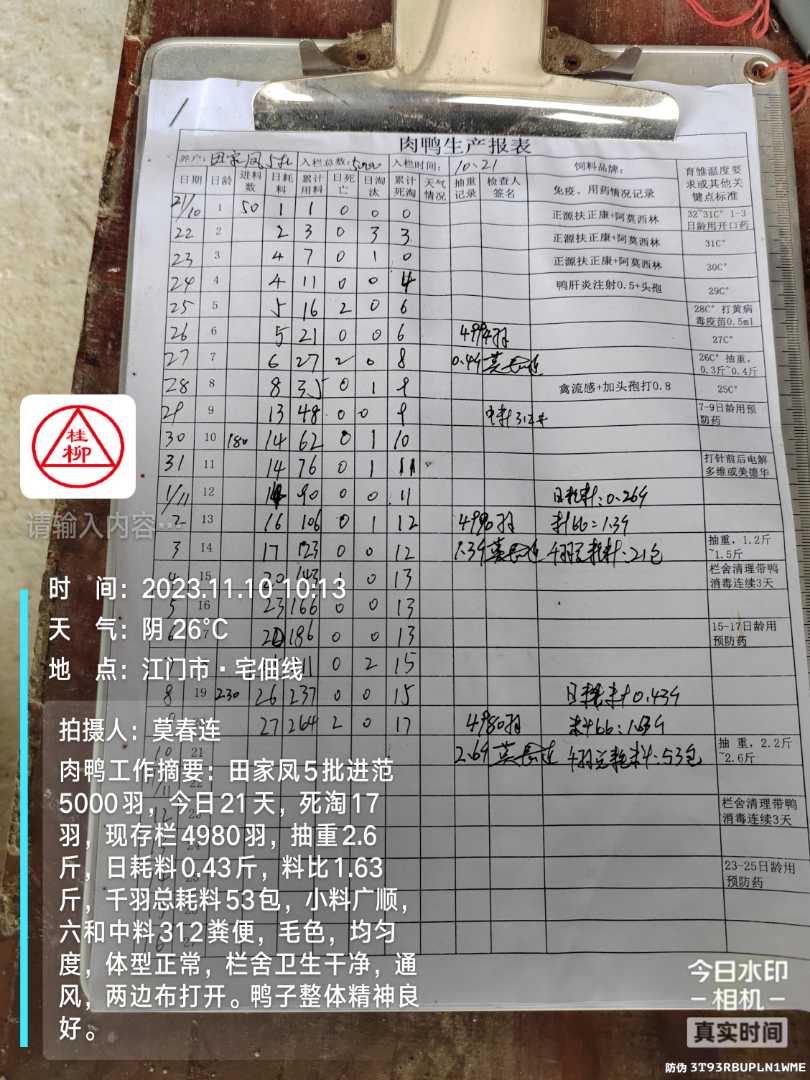 肉鸭生产报表
养户: 田家凤5批 入栏总数: 5000 入栏时间: 10-21 饲料品牌: 育雏温度要求或其他关键点标准
日期 日龄 进料数 日耗料 累计用料 日死亡 日淘汰 累计死淘 天气情况 抽重记录 检查人签名 免疫、用药情况记录
21/10 1 50 1 1 0 0 0 正源扶正康+阿莫西林 32~31C° 1-3日龄用开口药
22 2 2 3 0 3 3 正源扶正康+阿莫西林 31C°
23 3 4 7 0 1 0 正源扶正康+阿莫西林 30C°
24 4 4 11 0 0 4 鸭肝炎注射0.5+头孢 29C°
25 5 5 16 2 0 6 28C° 打黄病毒疫苗0.5ml
26 6 5 21 0 0 6 4994羽 27C°
27 7 6 27 2 0 8 0.4斤 莫春连 26C° 抽重,0.3斤~0.4斤
28 8 8 35 0 1 9 禽流感+加头孢打0.8 25C°
29 9 13 48 0 0 9 312# 7-9日龄用预防药
30 10 180 14 62 0 1 10
31 11 14 76 0 1 11 打针前后电解多维或美德华
1/11 12 14 90 0 0 11 日耗料:0.26斤
2 13 16 106 0 1 12 4990羽 料比:1.3斤
3 14 17 123 0 0 12 1.3斤 莫春连 千羽总耗料:21包 抽重,1.2斤~1.5斤
4 15 20 143 0 13 栏舍清理带鸭消毒连续3天
5 16 23 166 0 0 13
6 17 20 186 0 0 13 15-17日龄用预防药
11 0 2 15
8 19 230 26 237 0 0 15 日耗料0.43斤
27 264 2 0 17 4980羽 料比:1.63斤
10 21 2.6斤 莫春连 千羽总耗料:53包 抽重,2.2斤~2.6斤
11/11 22
12 23 栏舍清理带鸭消毒连续3天
23-25日龄用预防药
桂柳
请输入内容…
时 间: 2023.11.10 10:13
天 气: 阴 26℃
地 点: 江门市·宅佃线
拍摄人: 莫春连
肉鸭工作摘要: 田家凤5批进范
5000羽,今日21天,死淘17
羽,现存栏4980羽,抽重2.6
斤,日耗料0.43斤,料比1.63
斤,千羽总耗料53包,小料广顺,
六和中料312粪便,毛色,均匀
度,体型正常,栏舍卫生干净,通
风,两边布打开。鸭子整体精神良
好。
今日水印
-相机-
真实时间
防伪 3T93RBUPLN1WME